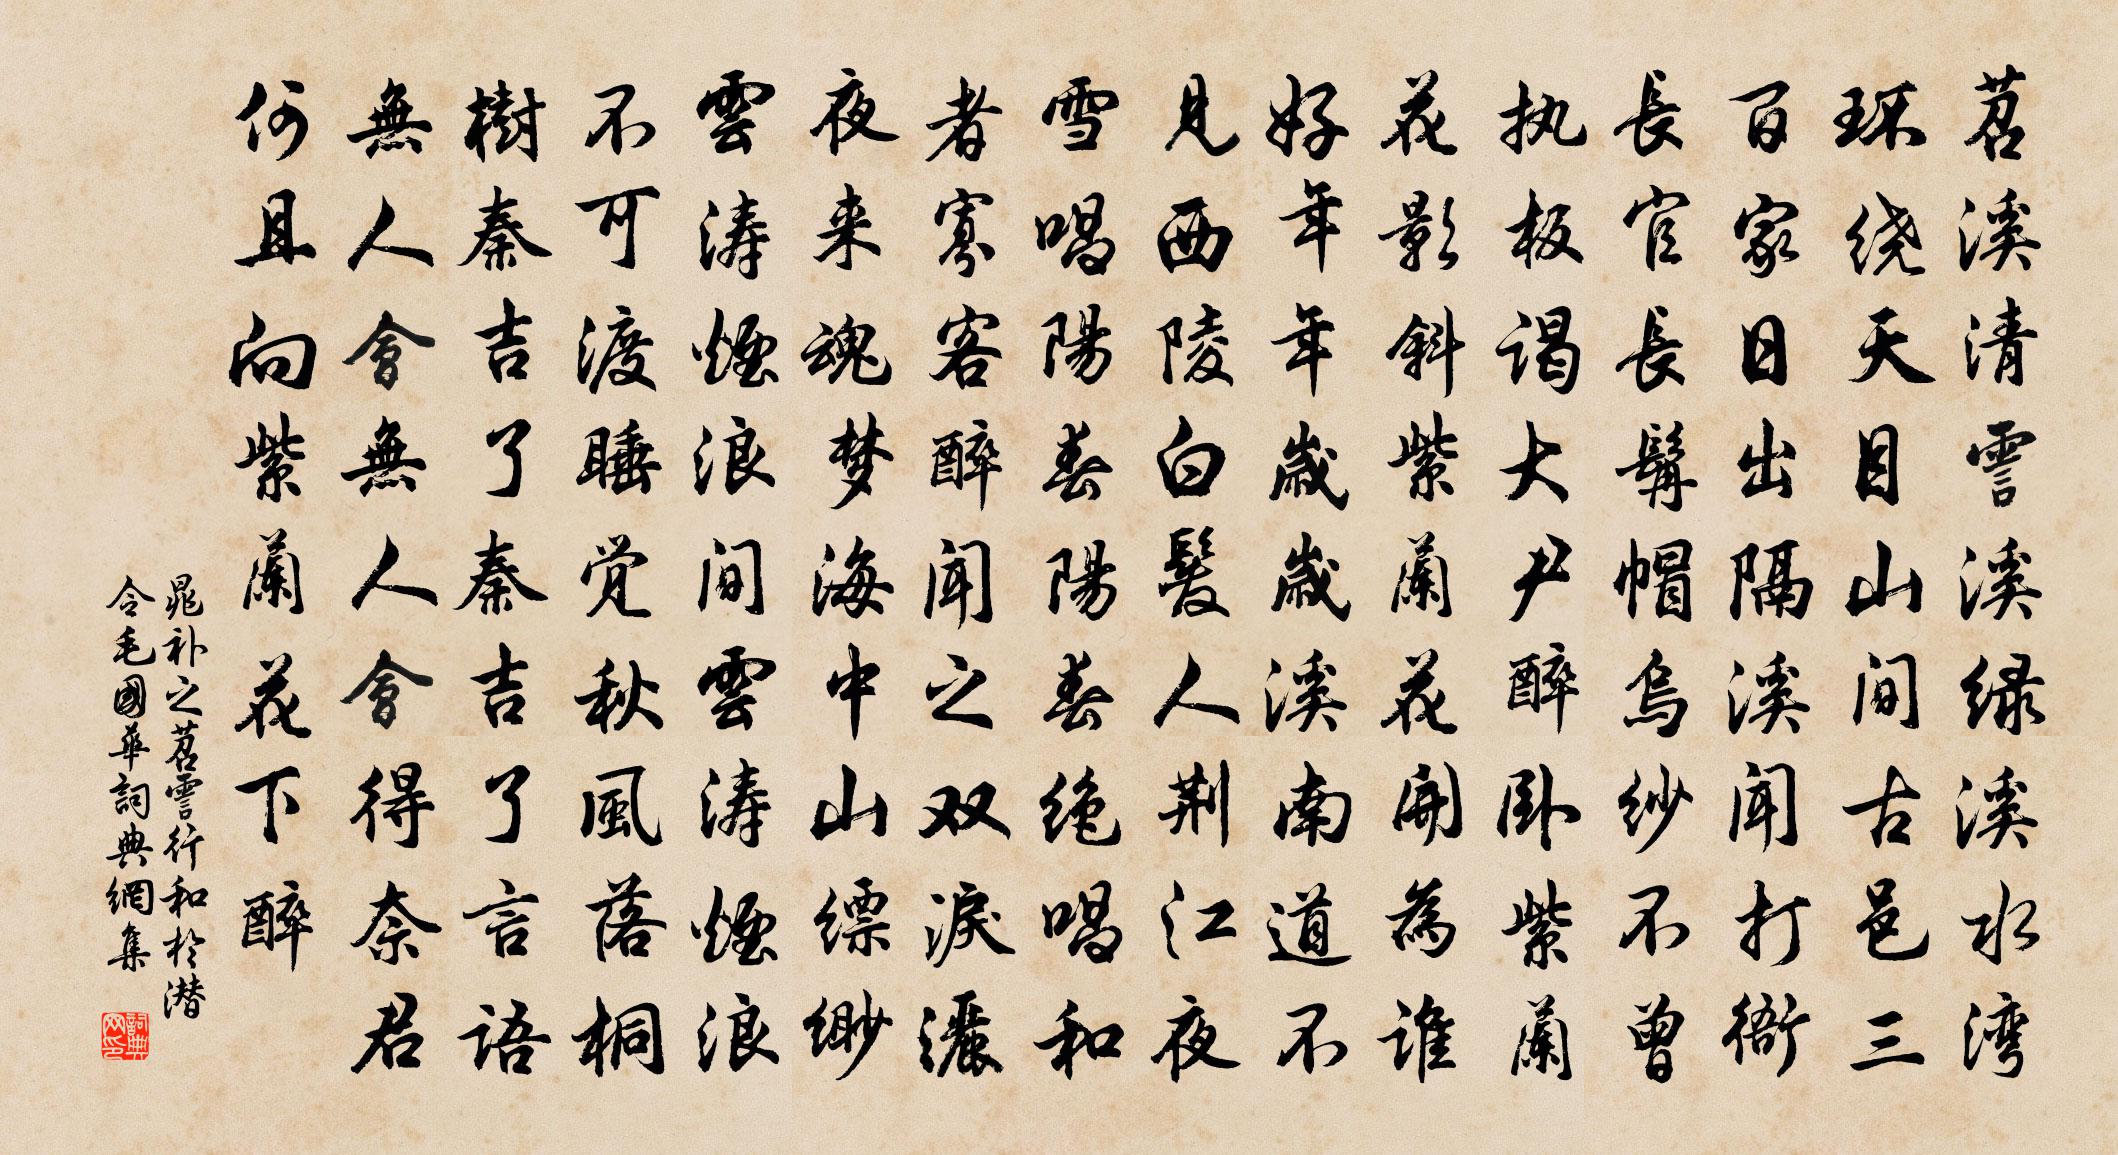 苕溪清霅溪绿溪水湾
环绕天目山间古邑三
百家日出隔溪闻打衙
長官長髯帽烏纱不曾
执板谒大尹醉卧紫蘭
花影斜紫蘭花開為谁
好年年歲歲溪南道不
見西陵白髮人荆江夜
雪唱陽春陽春绝唱和
者寡客醉闻之双淚灑
夜来魂梦海中山缥缈
雲涛煙浪间雲涛煙浪
不可渡睡觉秋風落桐
樹秦吉了秦吉了言語
無人會無人會得奈君
何且向紫蘭花下醉
晁补之苕霅行和於潜
令毛國華詞典網集
詞典网印